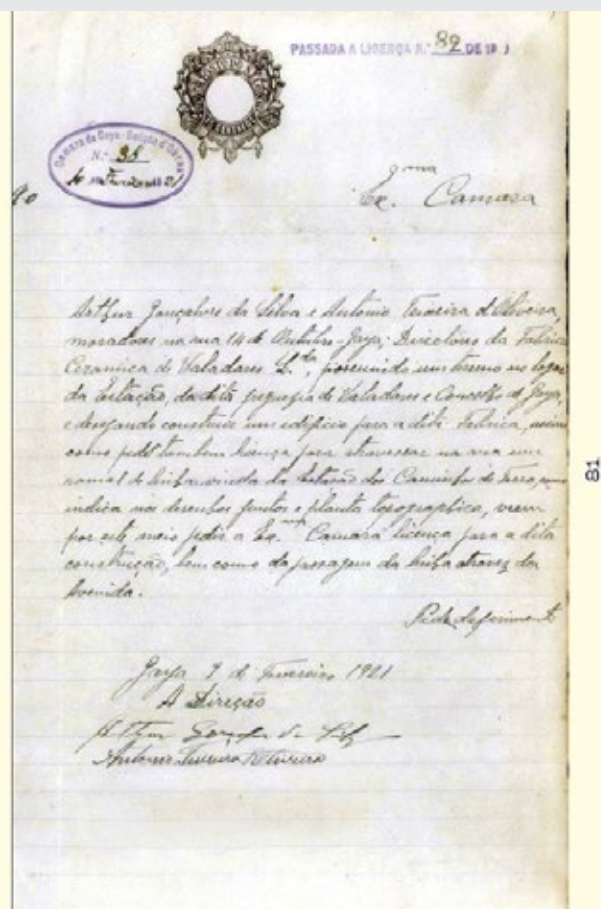 PASSADA A LICENÇA N.º 82 DE 19
Camara de Gaya
N.º
Ex.ma Camara
Arthur Gonçalves da Silva e Antonio Teixeira d'Oliveira,
moradores na rua 14 de Outubro-Gaya; Directores da Fabrica
Ceramica de Valadares L.da, possuindo um terreno no logar
da Estação, da dita freguezia de Valadares e Concelho de Gaya,
e desejando construir um edificio para a dita Fabrica, assim
como pede tambem licença para atravessar na via um
ramal de linha vinda da Estação dos Caminhos de Ferro, como
indica nos desenhos juntos e planta topographica, vem
por este meio pedir a Ex.ma Camara licença para a dita
construção, bem como da passagem da linha atravez da
Avenida.
Pede deferimento
Gaya 9 de Fevereiro 1921
A Direcção
Arthur Gonçalves da Silva
Antonio Teixeira d'Oliveira
81